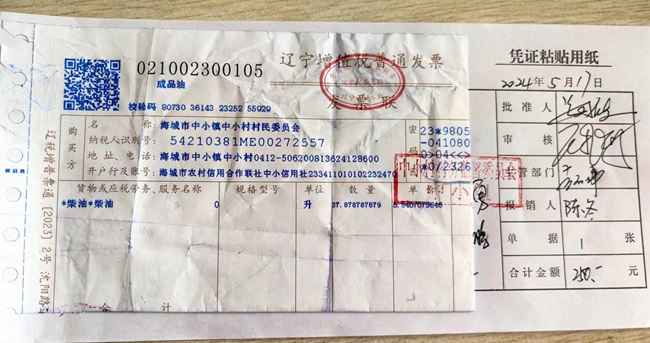 021002300105
辽宁增值税普通发票
成品油
发票联
校验码 80730 36143 23252 55929
购买方
名称：海城市中小镇中小村村民委员会
纳税人识别号：54210381ME00272557
地址、电话：海城市中小镇中小村0412-506200813624128600
开户行及账号：海城市农村信用合作联社中小信用社233411010102232470
密
23*9805
-041080
0>04<<>
*0/2326
货物或应税劳务、服务名称 规格型号 单位 数量 单价
*柴油*柴油 0 升 37.878787879 5.8407079646
合计
辽税增普票通〔2023〕2号沈阳路
凭证粘贴用纸
2024年5月17日
批准人
审核
主管部门
报销人 陈冬
单据 1 张
合计金额 250.- 元